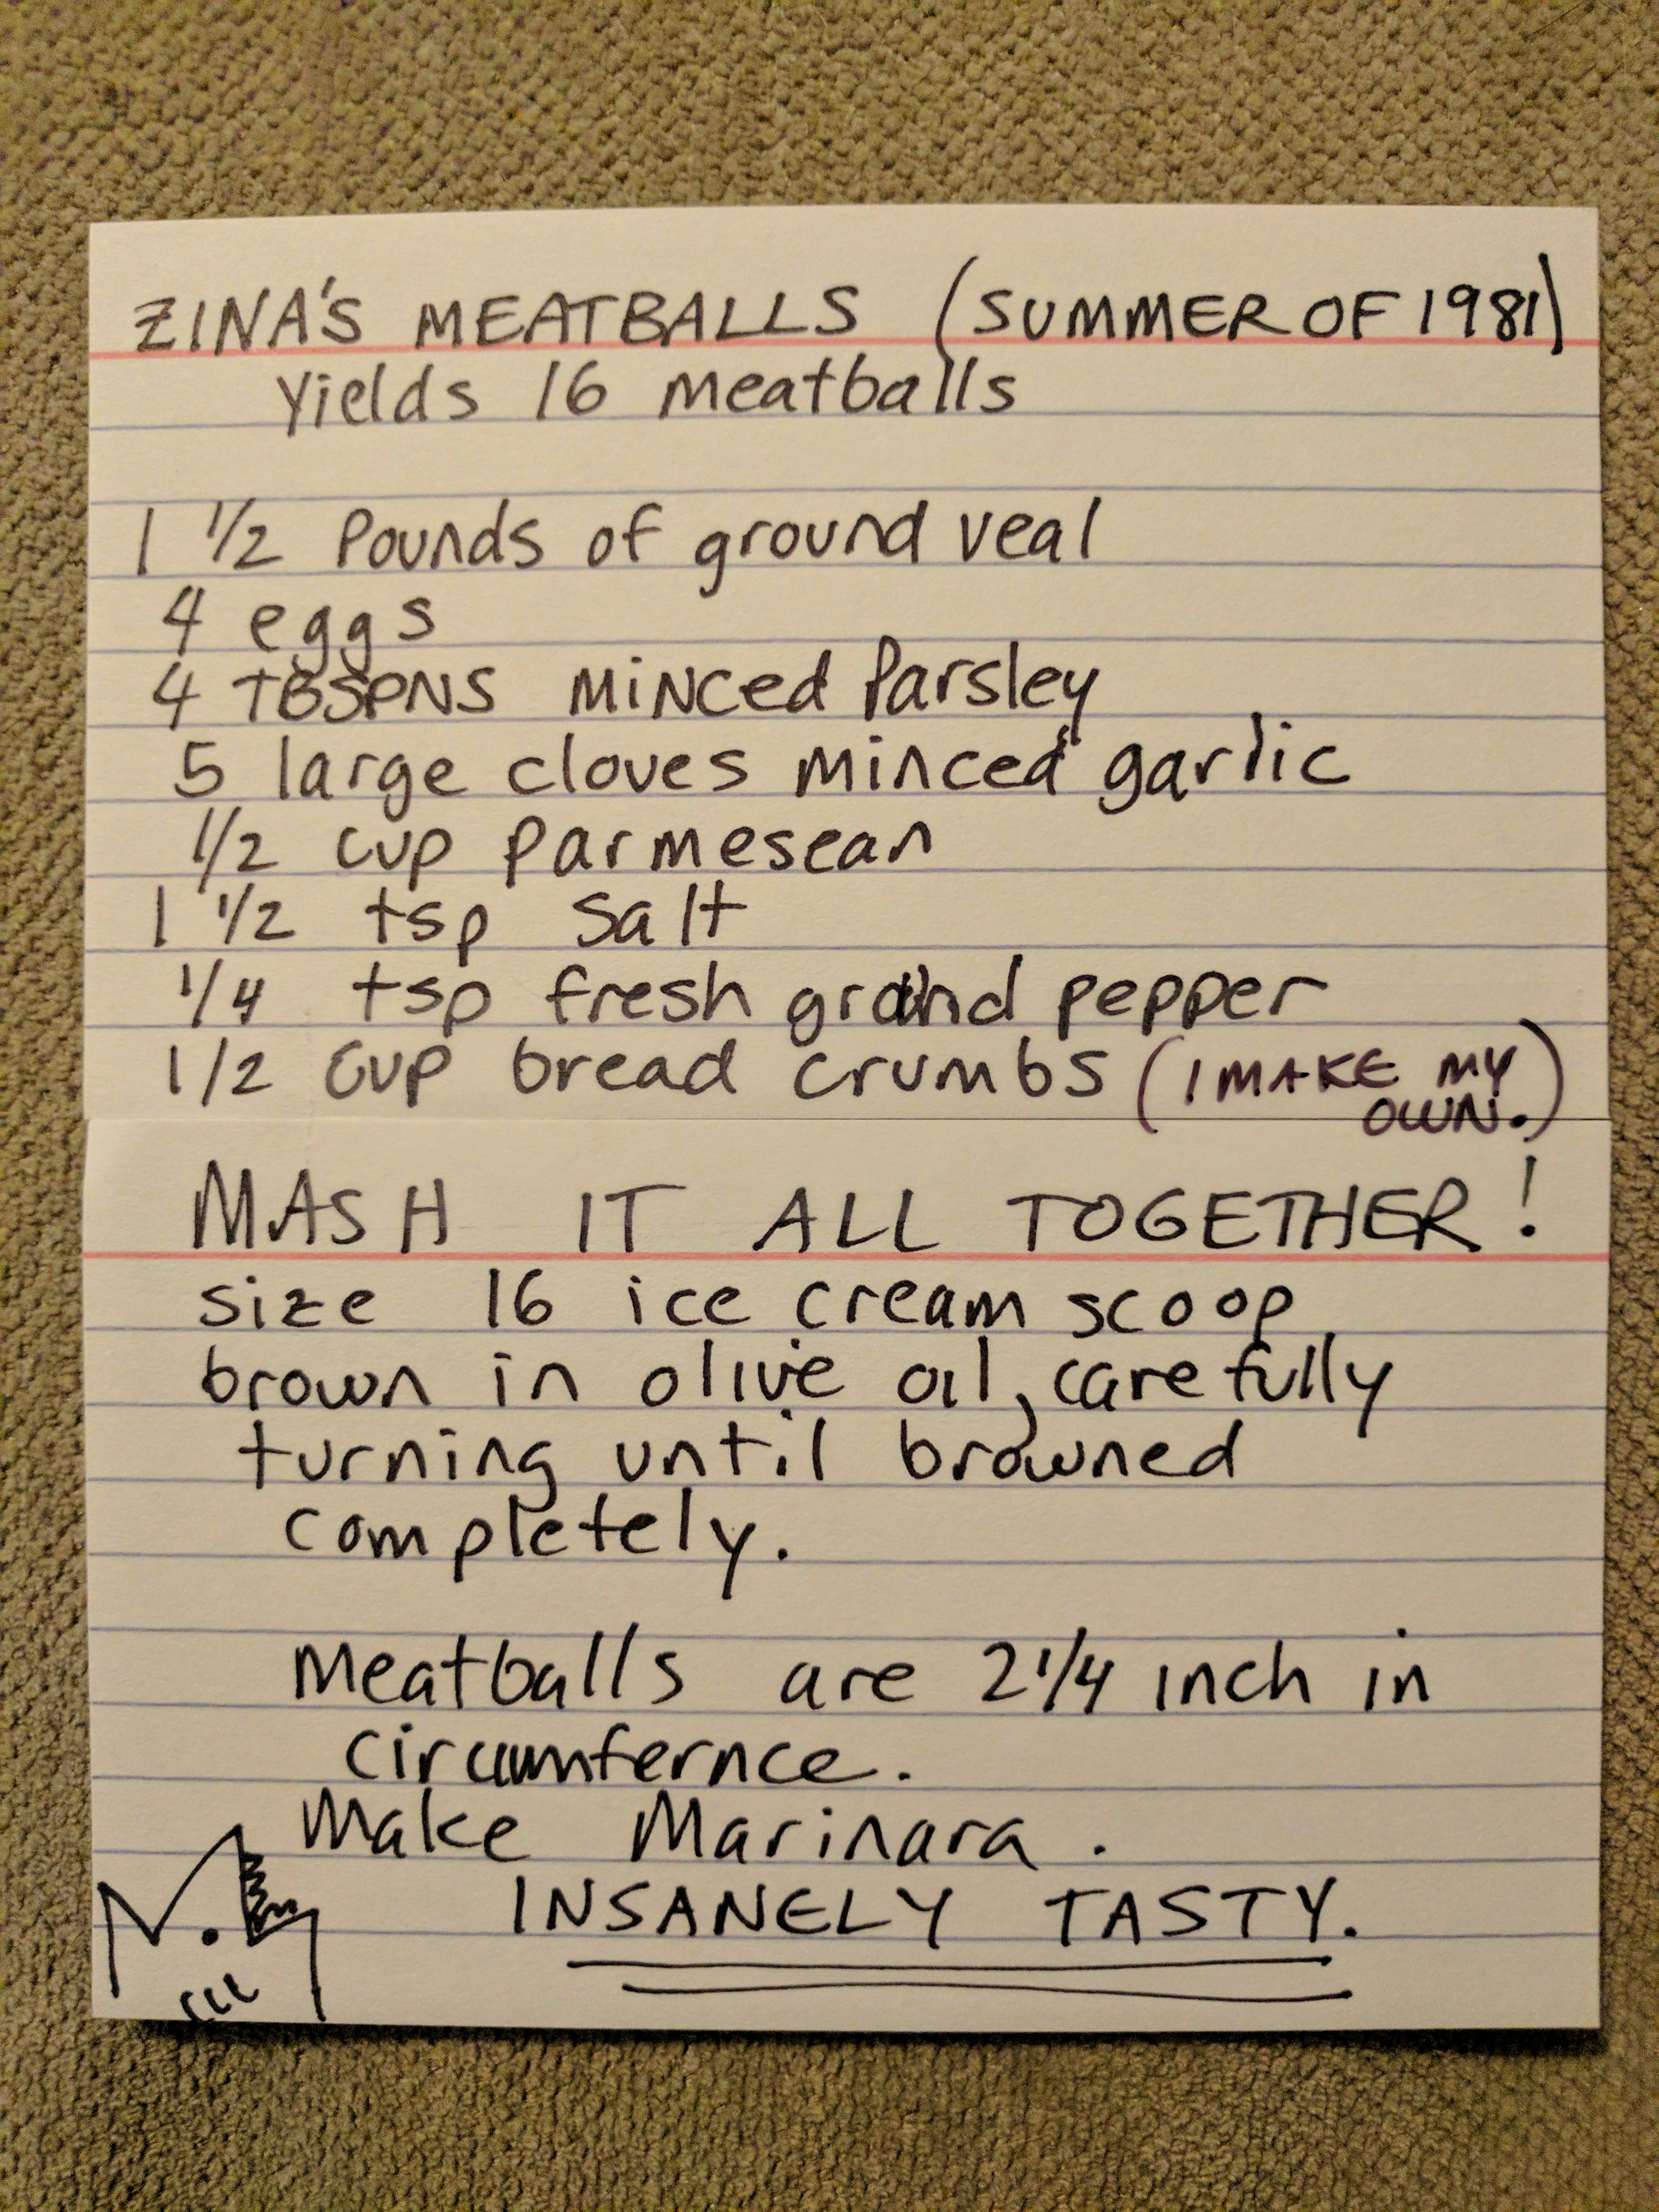 ZINA'S MEATBALLS (SUMMER OF 1981)
Yields 16 Meatballs
1 1/2 Pounds of ground veal
4 eggs
4 TBSPNS MiNCed Parsley
5 large cloves minced garlic
1/2 cup parmesean
1 1/2 tsp salt
1/4 tsp fresh grind pepper
1/2 cup bread crumbs (I MAKE MY
OWN.)
MASH IT ALL TOGETHER!
size 16 ice cream scoop
brown in olive oil, carefully
turning until browned
completely.
Meatballs are 2 1/4 inch in
circumfernce.
Make Marinara.
INSANELY TASTY.